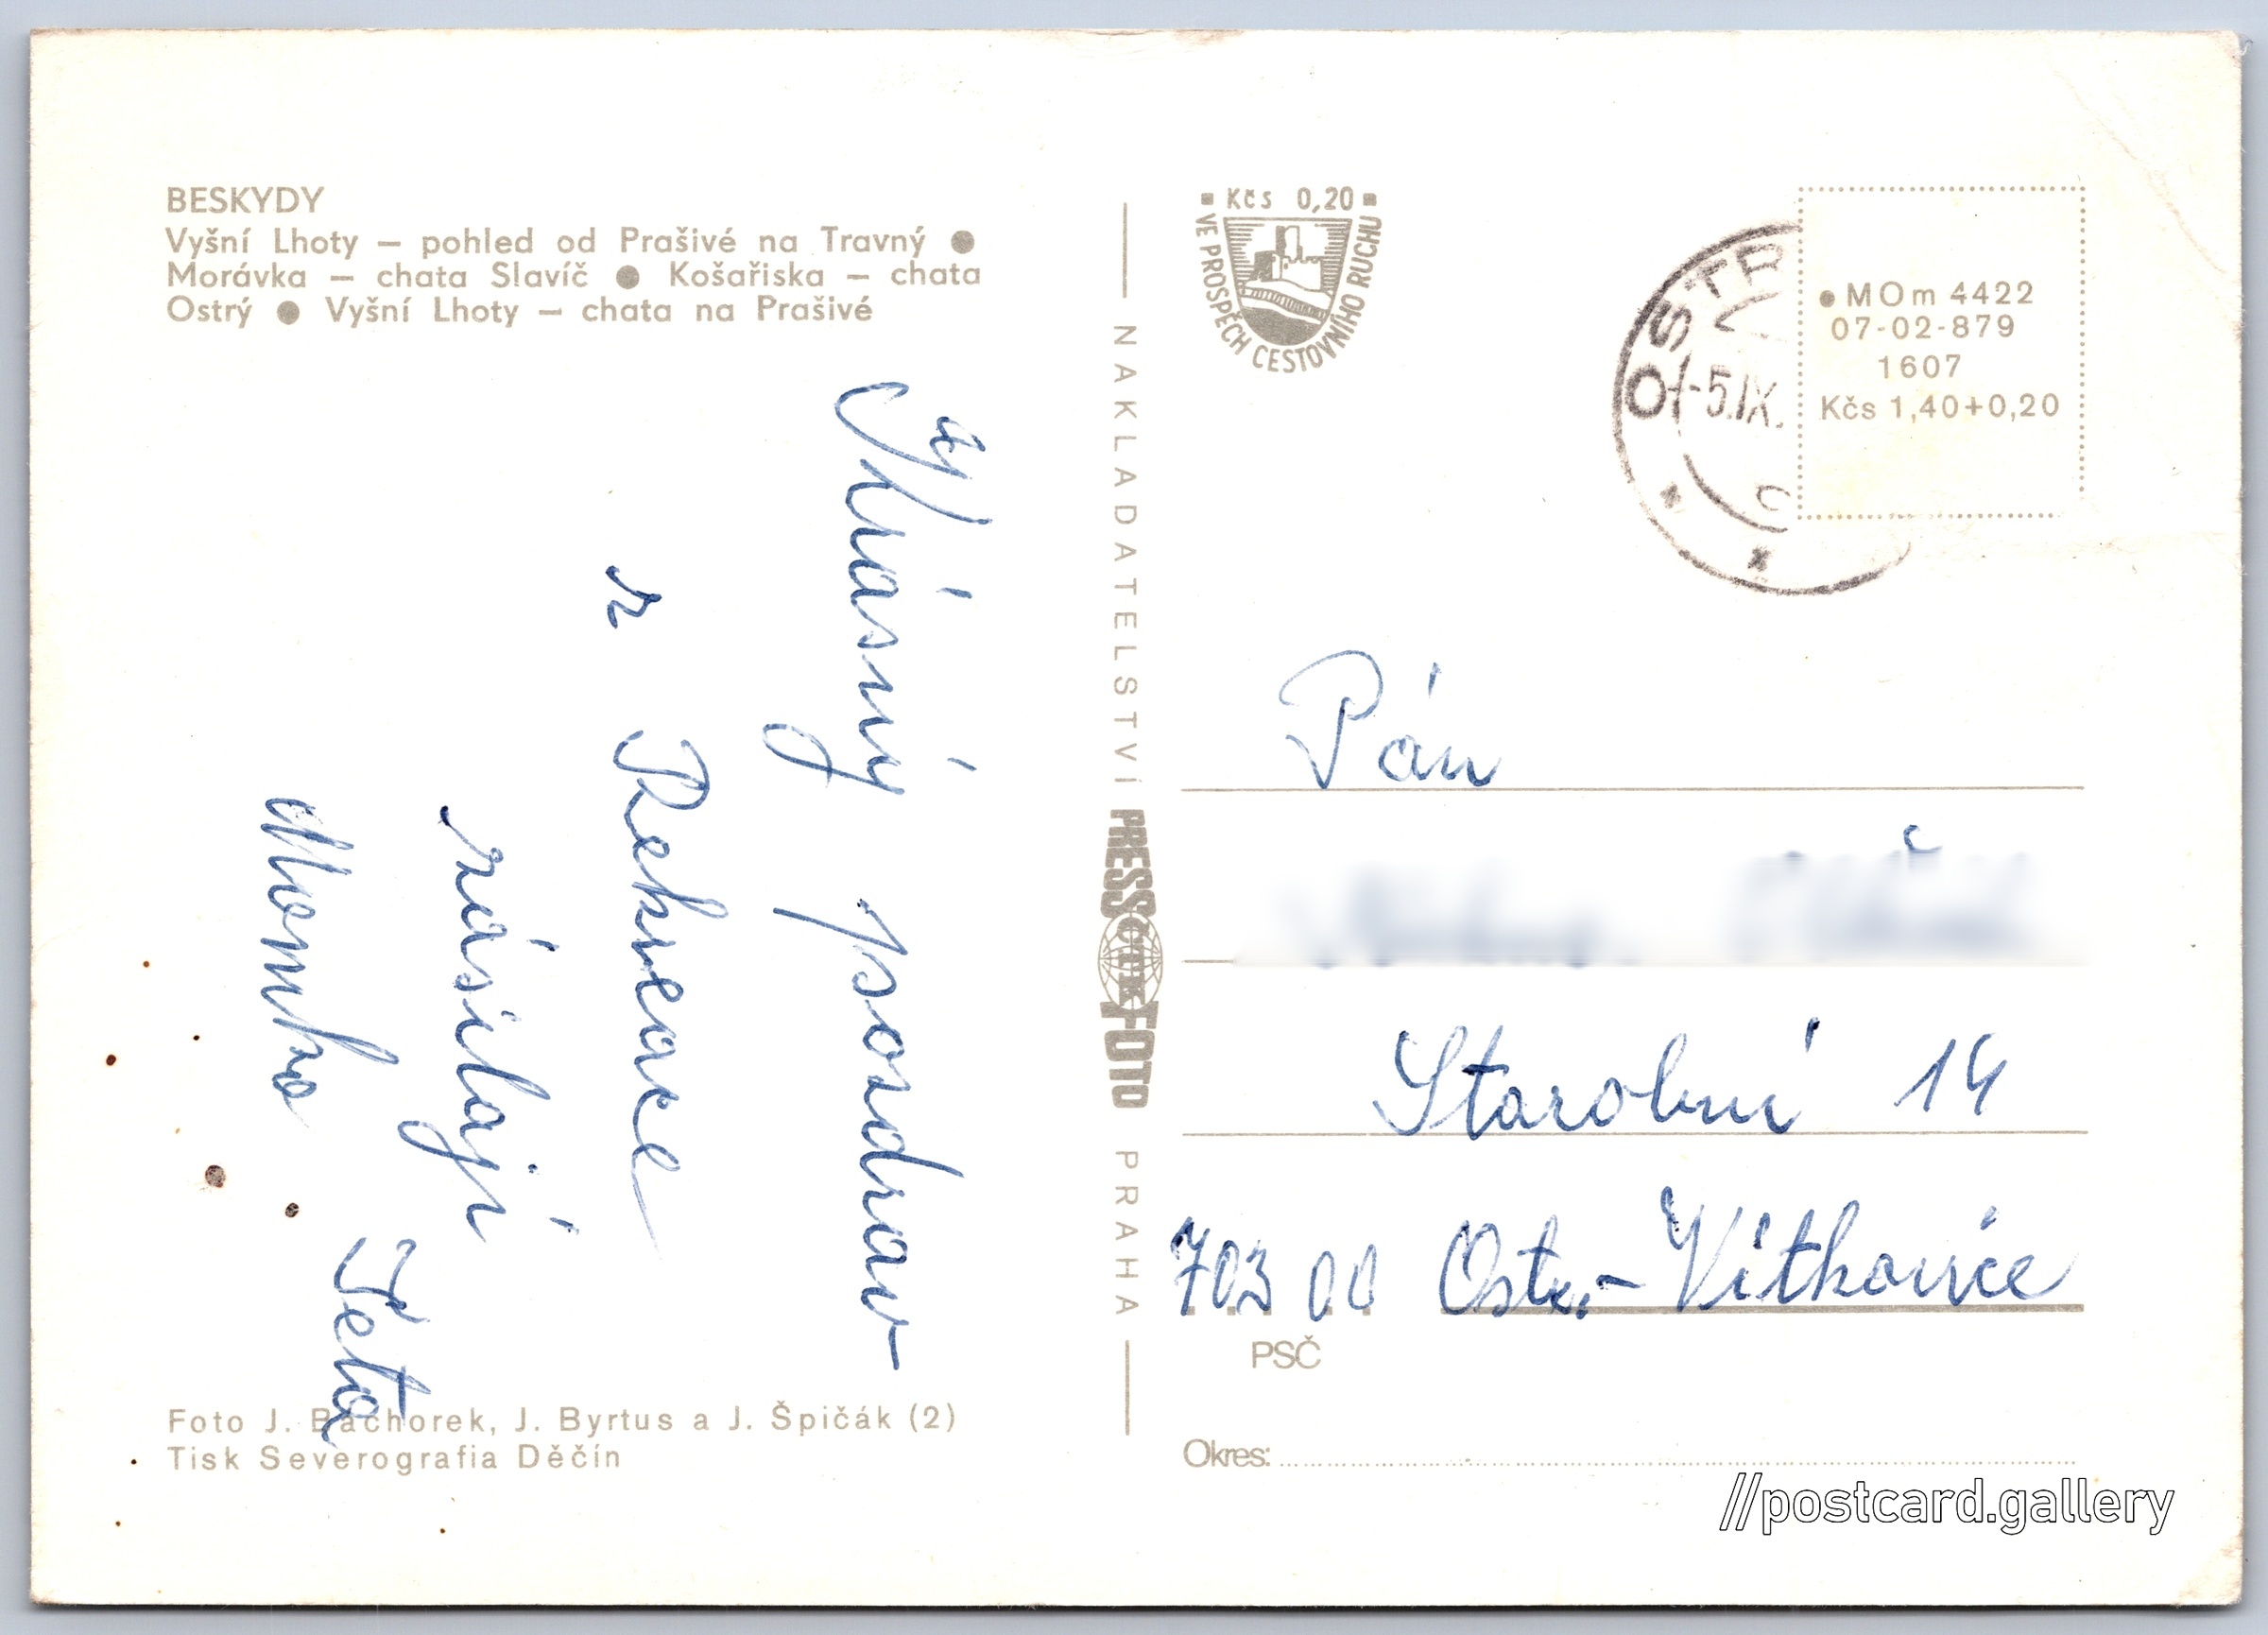 BESKYDY
Vyšní Lhoty – pohled od Prašivé na Travný ●
Morávka – chata Slavíč ● Košařiska – chata
Ostrý ● Vyšní Lhoty – chata na Prašivé
Krásný pozdrav
z Rekreace
zásilají
Mamka Teta
Foto J. Bachorek, J. Byrtus a J. Špičák (2)
Tisk Severografia Děčín
NAKLADATELSTVÍ PRESSFOTO PRAHA
ČTK
Kčs 0,20
VE PROSPĚCH CESTOVNÍHO RUCHU
OSTR
-5.IX.
● MOm 4422
07-02-879
1607
Kčs 1,40+0,20
Pán
Starobní 14
703 00 Ostr.-Vítkovice
PSČ
Okres:
//postcard.gallery